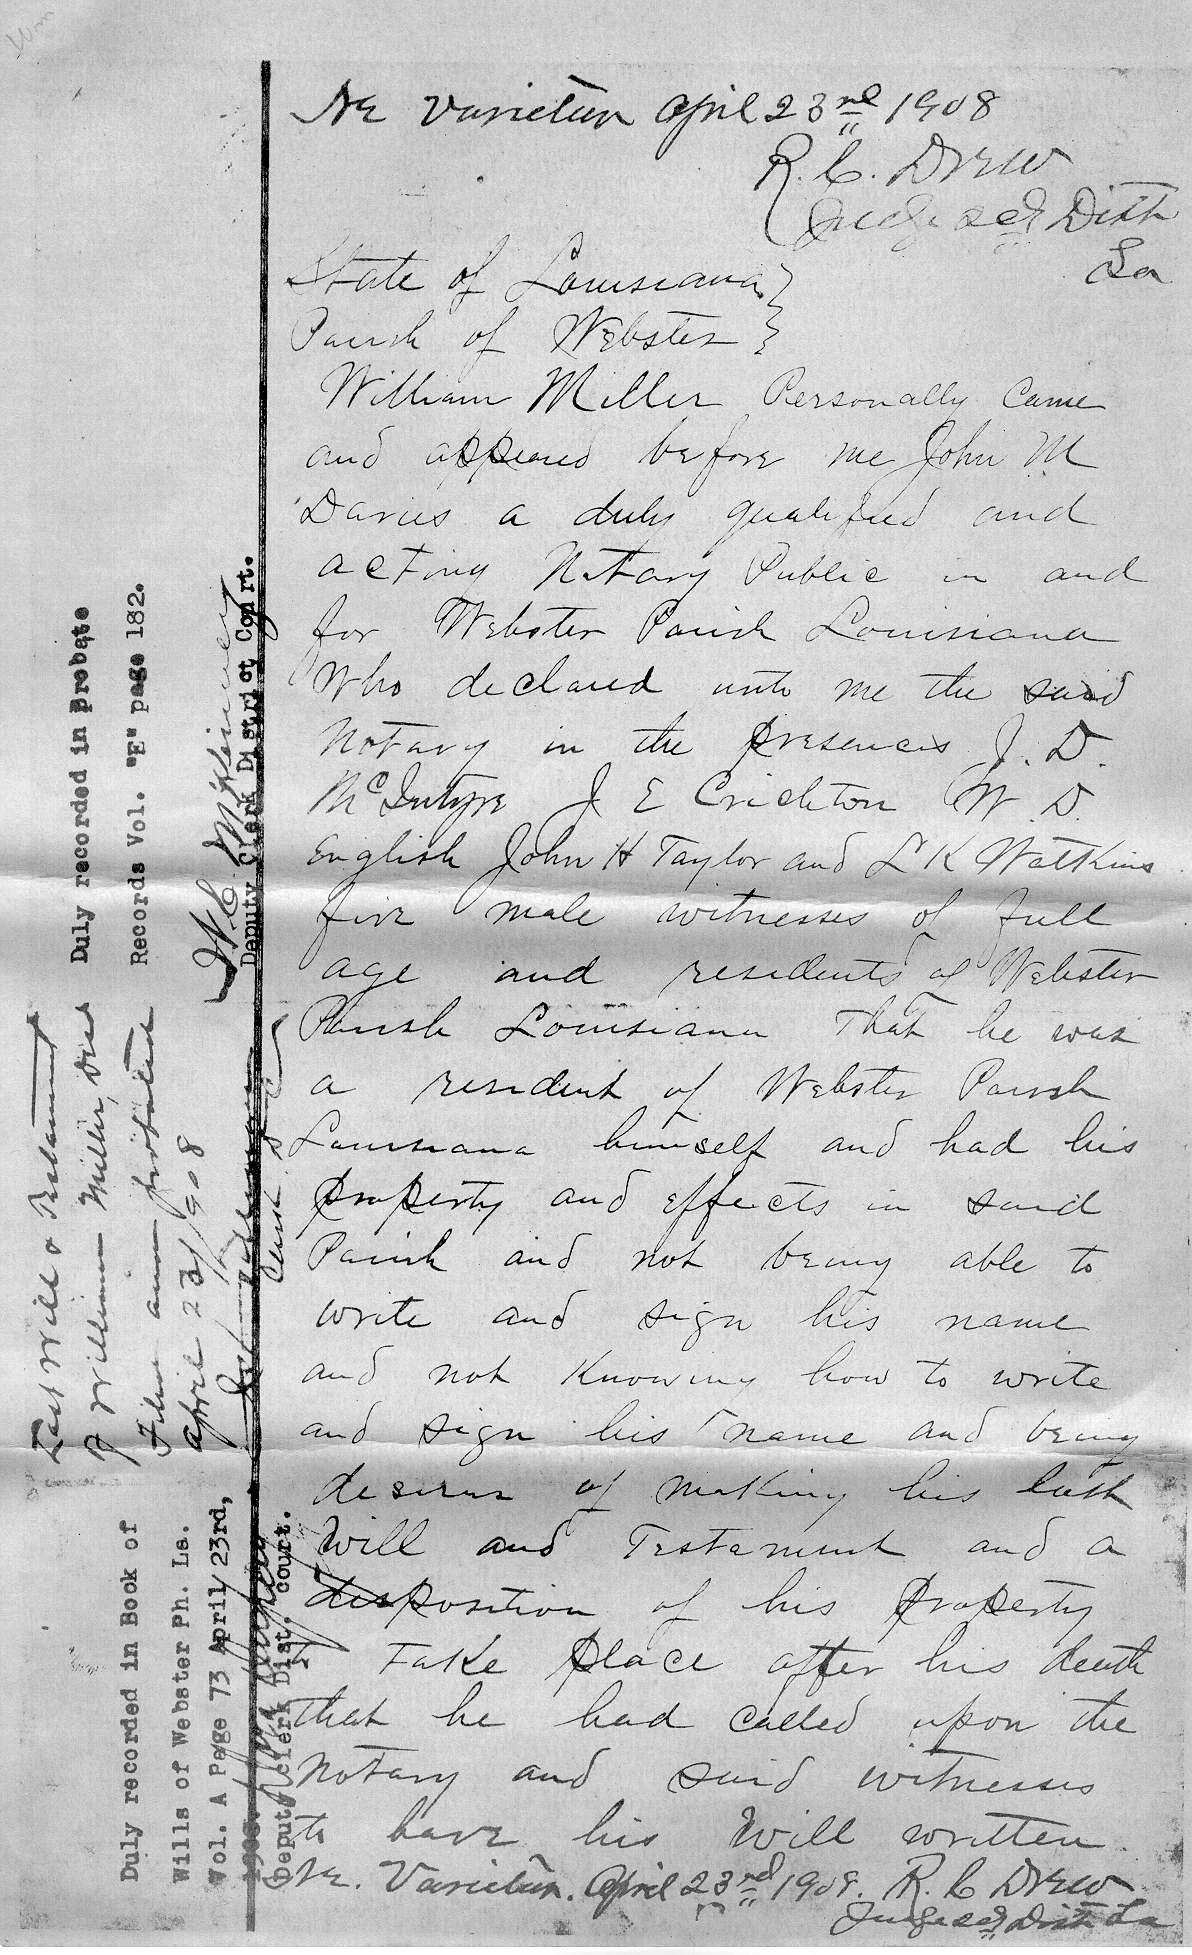 Ne Varietur April 23rd 1908
R. C. Drew
Judge 2d Dist
La
State of Louisiana
Parish of Webster
William Miller Personally Came
and appeared before me John M
Davies a duly qualified and
acting Notary Public in and
for Webster Parish Louisiana
Who declared unto me the said
Notary in the presences J. D.
McIntyre J E Crichton W. D.
English John H Taylor and L K Watkins
five male witnesses of full
age and residents of Webster
Parish Louisiana That he was
a resident of Webster Parish
Louisiana himself and had his
property and effects in said
Parish and not being able to
write and sign his name
and not Knowing how to write
and sign his name and being
desirus of making his last
Will and Testament and a
disposition of his property
to Take place after his death
that he had called upon the
Notary and said witnesses
to have his Will written
Ne. Varietur. April 23rd 1908. R. C Drew
Judge 2d Dist La
Last Will & Testament
of William Miller, Decd
Filed and probated
April 23/1908
Clerk
Duly recorded in probate
Records Vol. "E" page 182.
Deputy Clerk District Court.
Duly recorded in Book of
Wills of Webster Ph. La.
Vol. A Page 73 April 23rd,
1908.
Deputy Clerk Dist. Court.